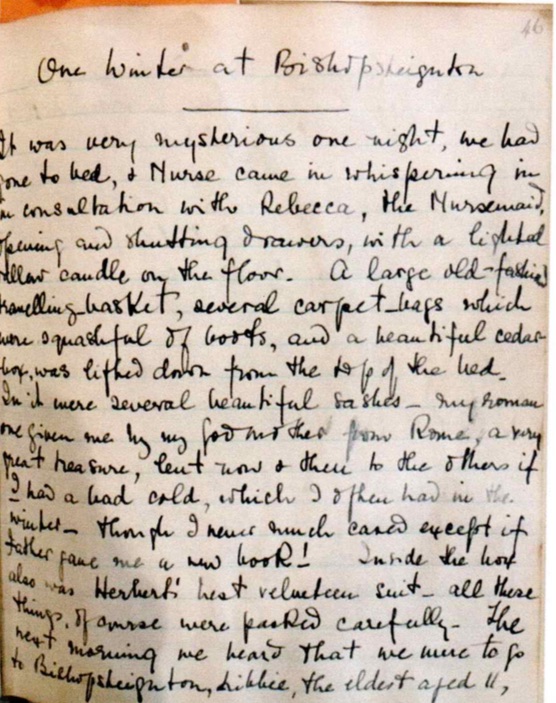 46
One Winter at Bishopsteignton
It was very mysterious one night, we had
gone to bed, & Nurse came in whispering in
in consultation with Rebecca, the Nursemaid,
opening and shutting drawers, with a lighted
tallow candle on the floor. A large old-fashioned
travelling-basket, several carpet-bags which
were squashful of boots, and a beautiful cedar-
box, was lifted down from the top of the bed.
In it were several beautiful sashes - my roman
one given me by my Godmother from Rome, a very
great treasure, lent now & then to the others if
I had a bad cold, which I often had in the
winter - though I never much cared except if
Father gave me a new book! Inside the box
also was Herbert's best velveteen suit - all these
things, of course were packed carefully - The
next morning we heard that we were to go
to Bishopsteignton, Libbie, the eldest aged 11,